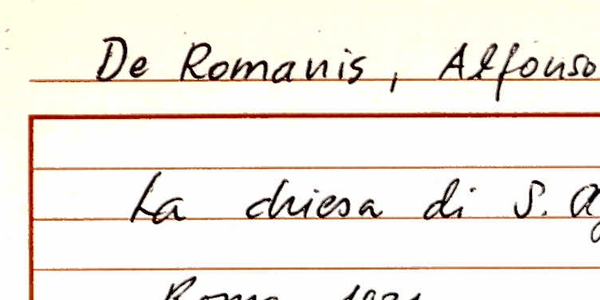 De Romanis, Alfonso
La chiesa di S. Ag
Roma